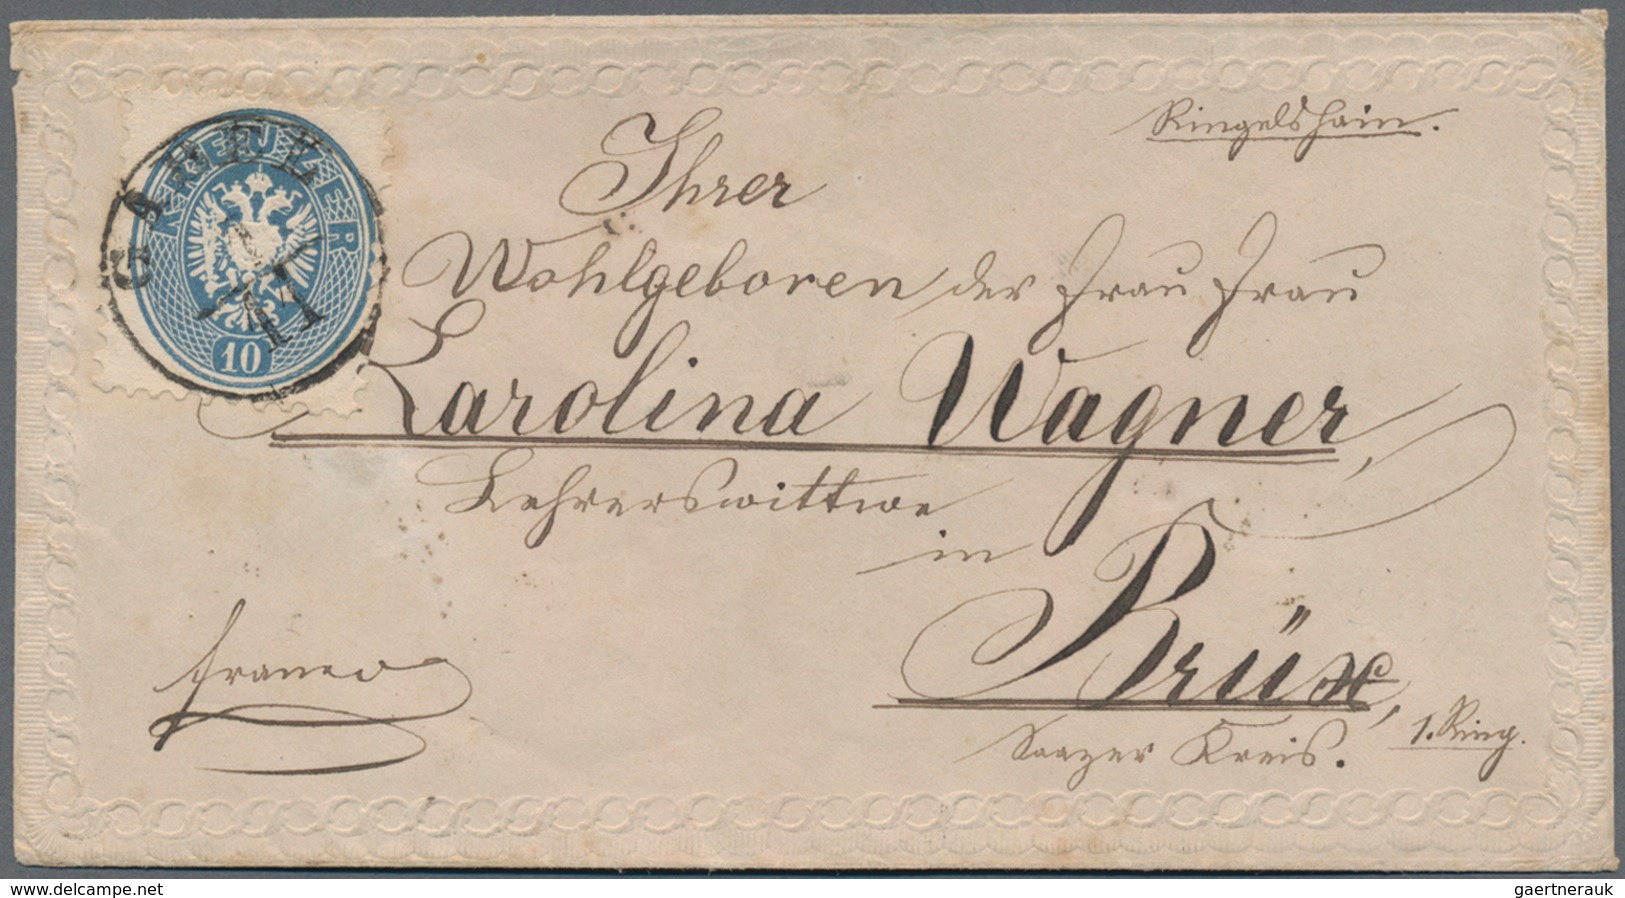 Ringelshain.
GABEL
KREUZER
17
11
10
Ihrer
Wohlgeboren der Frau Frau
Carolina Wagner,
Lehrerswittwe
in
Brüx,
1. Ring.
Saazer Kreis.
franco
www.delcampe.net
gaertnerauk